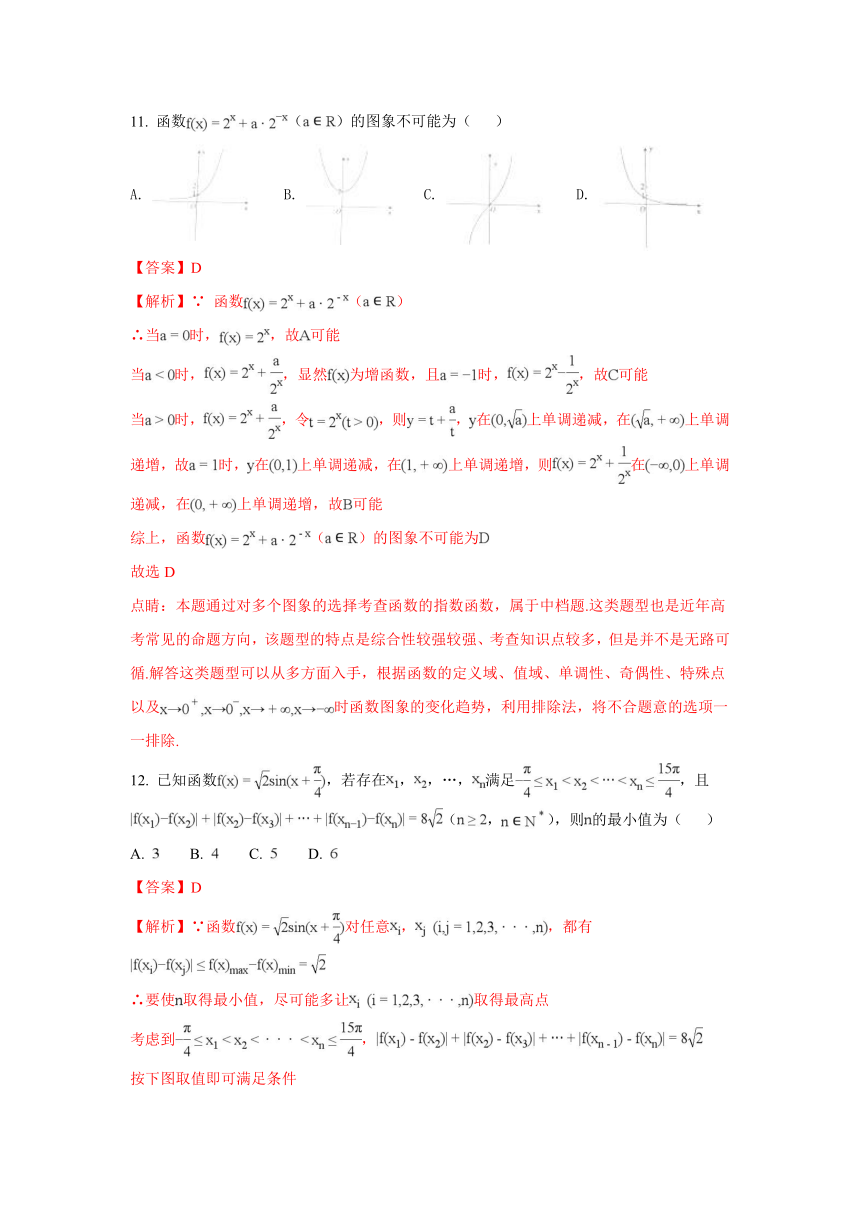 11. 函数f(x) = 2^x + a · 2^−x（a ∈ R）的图象不可能为（　　）
A. B. C. D.
【答案】D
【解析】∵ 函数f(x) = 2^x + a · 2^- x（a ∈ R）
∴当a = 0时，f(x) = 2^x，故A可能
当a < 0时，f(x) = 2^x + a/2^x，显然f(x)为增函数，且a = −1时，f(x) = 2^x−1/2^x，故C可能
当a > 0时，f(x) = 2^x + a/2^x，令t = 2^x(t > 0)，则y = t + a/t，y在(0,√a)上单调递减，在(√a, + ∞)上单调
递增，故a = 1时，y在(0,1)上单调递减，在(1, + ∞)上单调递增，则f(x) = 2^x + 1/2^x在(−∞,0)上单调
递减，在(0, + ∞)上单调递增，故B可能
综上，函数f(x) = 2^x + a · 2^- x（a ∈ R）的图象不可能为D
故选 D
点睛：本题通过对多个图象的选择考查函数的指数函数，属于中档题.这类题型也是近年高
考常见的命题方向，该题型的特点是综合性较强较强、考查知识点较多，但是并不是无路可
循.解答这类题型可以从多方面入手，根据函数的定义域、值域、单调性、奇偶性、特殊点
以及x→0^+,x→0^−,x→ + ∞,x→−∞时函数图象的变化趋势，利用排除法，将不合题意的选项一
一排除.
12. 已知函数f(x) = √2sin(x + π/4)，若存在x₁，x₂，…，xₙ满足−π/4 ≤ x₁ < x₂ < ⋯ < xₙ ≤ 15π/4，且
|f(x₁)−f(x₂)| + |f(x₂)−f(x₃)| + ⋯ + |f(xₙ₋₁)−f(xₙ)| = 8√2（n ≥ 2，n ∈ N^*），则n的最小值为（　　）
A. 3 B. 4 C. 5 D. 6
【答案】D
【解析】∵函数f(x) = √2sin(x + π/4)对任意xᵢ，xⱼ (i,j = 1,2,3, · · · ,n)，都有
|f(xᵢ)−f(xⱼ)| ≤ f(x)max−f(x)min = √2
∴要使n取得最小值，尽可能多让xᵢ (i = 1,2,3, · · · ,n)取得最高点
考虑到−π/4 ≤ x₁ < x₂ < · · · < xₙ ≤ 15π/4，|f(x₁) - f(x₂)| + |f(x₂) - f(x₃)| + ⋯ + |f(xₙ ₋ ₁) - f(xₙ)| = 8√2
按下图取值即可满足条件